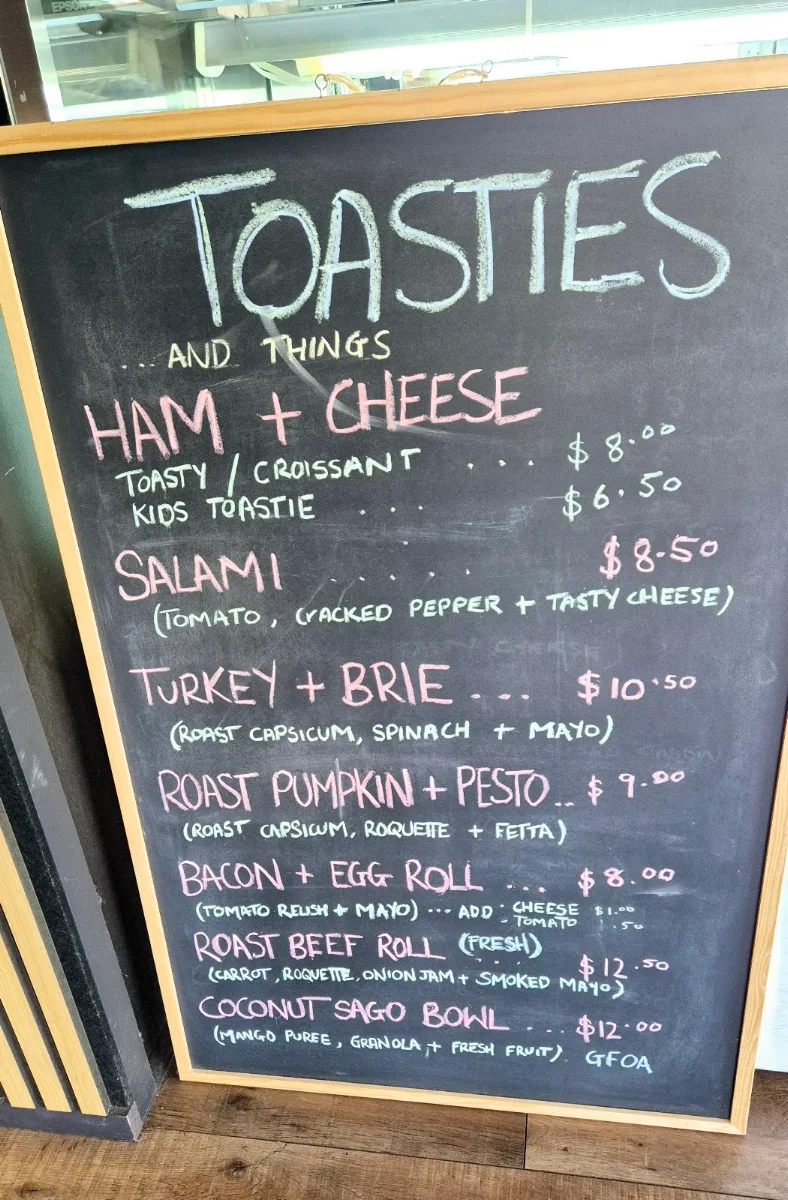 EPSON
TOASTIES
...AND THINGS
HAM + CHEESE
TOASTY / CROISSANT .... $8.00
KIDS TOASTIE ... $6.50
SALAMI ..... $8.50
(TOMATO, CRACKED PEPPER + TASTY CHEESE)
TURKEY + BRIE ... $10.50
(ROAST CAPSICUM, SPINACH + MAYO)
ROAST PUMPKIN + PESTO.. $9.00
(ROAST CAPSICUM, ROQUETTE + FETTA)
BACON + EGG ROLL ... $8.00
(TOMATO RELISH + MAYO) ... ADD - CHEESE $1.00
- TOMATO .50
ROAST BEEF ROLL (FRESH) .... $12.50
(CARROT, ROQUETTE, ONION JAM + SMOKED MAYO)
COCONUT SAGO BOWL ... $12.00
(MANGO PUREE, GRANOLA, + FRESH FRUIT) GFOA